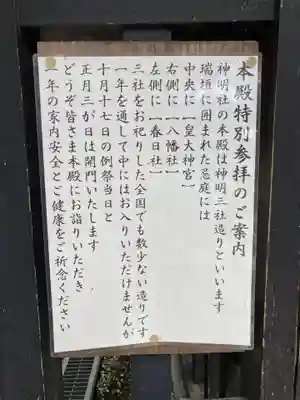 本殿特別参拝のご案内
神明社の本殿は神明三社造りといいます
瑞垣に囲まれた忌庭には
中央に【皇大神宮】
右側に【八幡社】
左側に【春日社】
三社をお祀りした全国でも数少ない造りです
一年を通して中にはお入りいただけませんが
十月十七日の例祭当日と
正月三が日は開門いたします
どうぞ皆さま本殿にお詣りいただき
一年の家内安全とご健康をご祈念ください